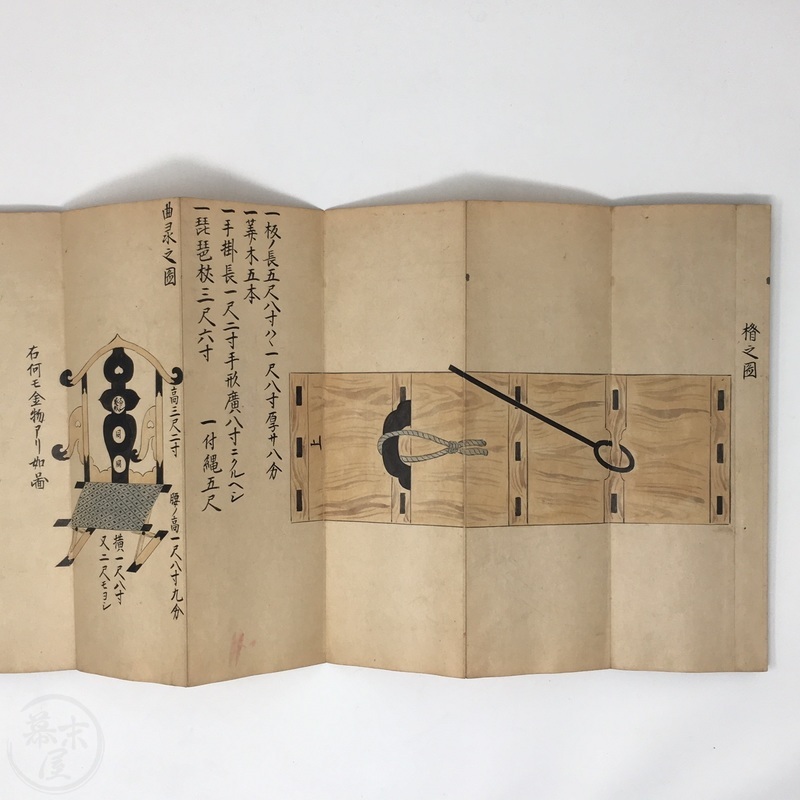 楯之圖
上
一板ノ長五尺八寸ハヽ一尺八寸厚サ八分
一筭ノ木五本
一手掛長一尺二寸手形廣八寸ニクルヘシ
一琵琶杖三尺六寸　一付縄五尺
曲彔之圖
高三尺二寸
腰ノ高一尺八寸九分
横一尺八寸
又二尺モヨシ
右何モ金物アリ如圖
幕末屋